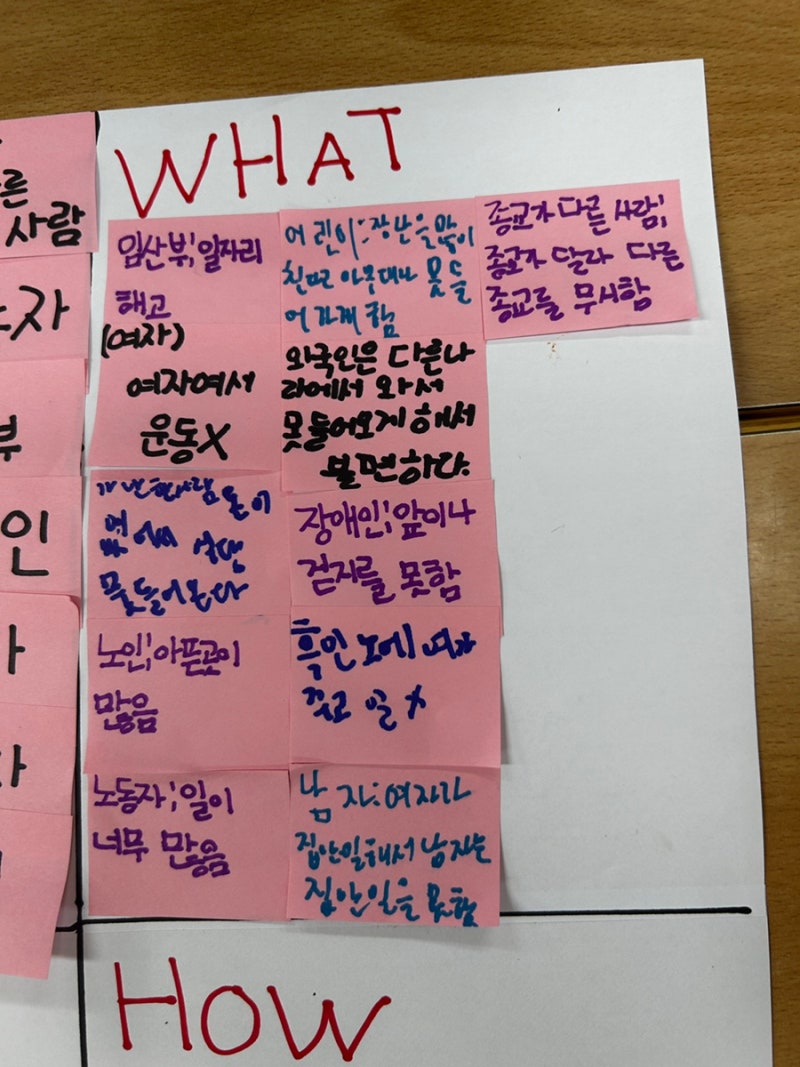 른
사람
자
부
인
WHAT
임산부; 일자리
해고
어린이: 장난을 많이
친다고 아무데나 못들
어가게 함
종교가 다른 사람;
종교가 달라 다른
종교를 무시함
(여자)
여자여서
운동X
외국인은 다른나
라에서 와서
못들어오게 해서
불편하다.
가난한사람 돈이
없어서
못들어온다
장애인; 앞이나
걷지를 못함
노인; 아픈곳이
많음
흑인 노예
일 X
노동자; 일이
너무 많음
남자: 여자가
집안일해서 남자는
집안일을 못함
HOW